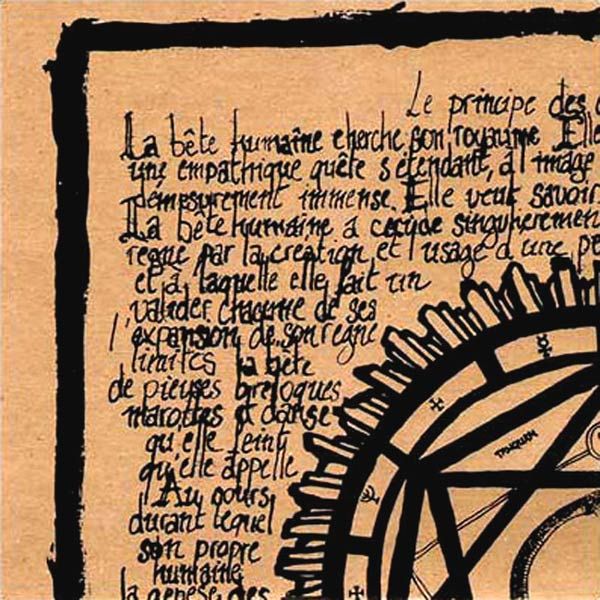 Le principe des
La bête humaine cherche son royaume Elle
une empathique quête s'étendant, à l'image
démesurément immense. Elle veut savoir
La bête humaine a décidé singulièremen
règne par la création et l'usage d'une pe
et à laquelle elle fait un
valider chacune de ses
l'expansion de son règne
limites la bête
de pieuses breloques
marottes et danse
qu'elle feint
qu'elle appelle
Au cours
durant lequel
son propre
humaine
la genèse des